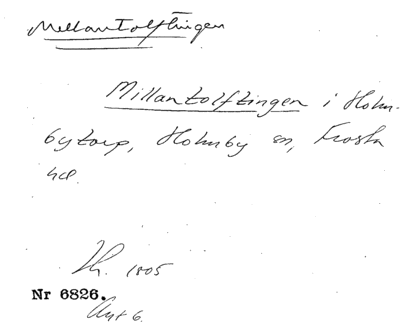 Mellantolftingen
Millantolftingen i Holm-
bytorp, Holmby sn, Frosta
hd.
1805
Nr 6826.
Akt 6.